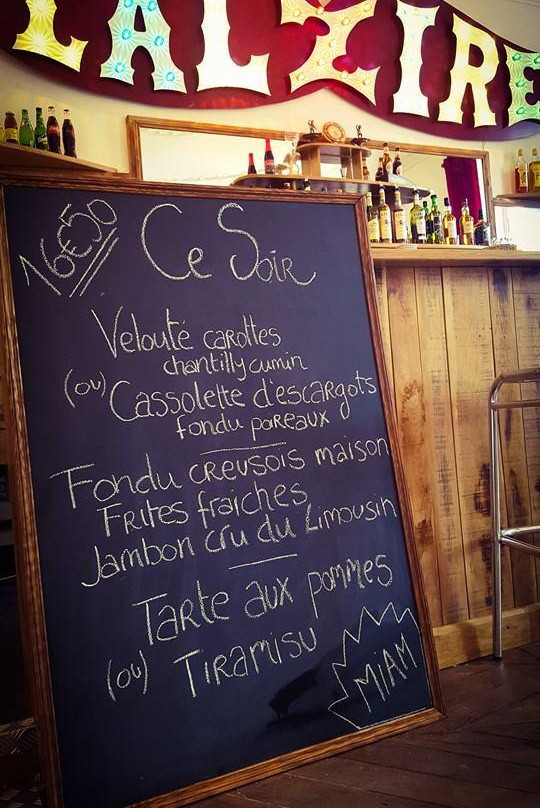 L'ALZIRE
16€50
Ce Soir
Velouté carottes
chantilly cumin
(ou) Cassolette d'escargots
fondu poireaux
Fondu creusois maison
Frites fraiches
Jambon cru du Limousin
Tarte aux pommes
(ou) Tiramisu
MIAM